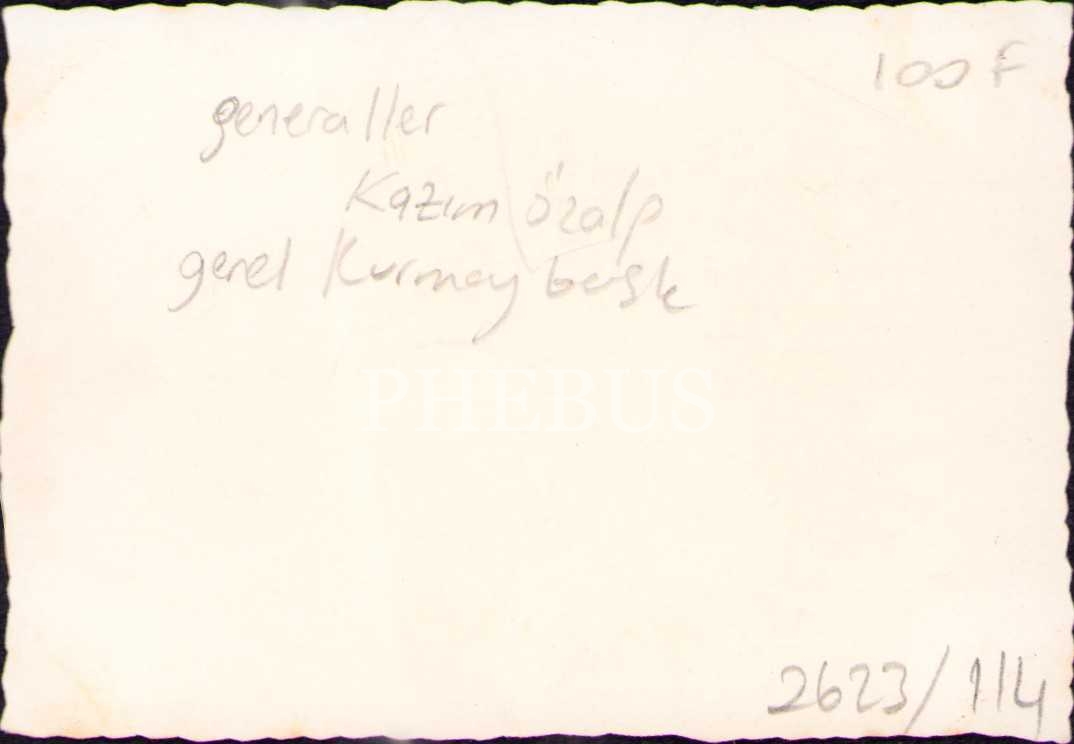 100 F
generaller
Kazım özalp
genel Kurmay başk
PHEBUS
2623/114